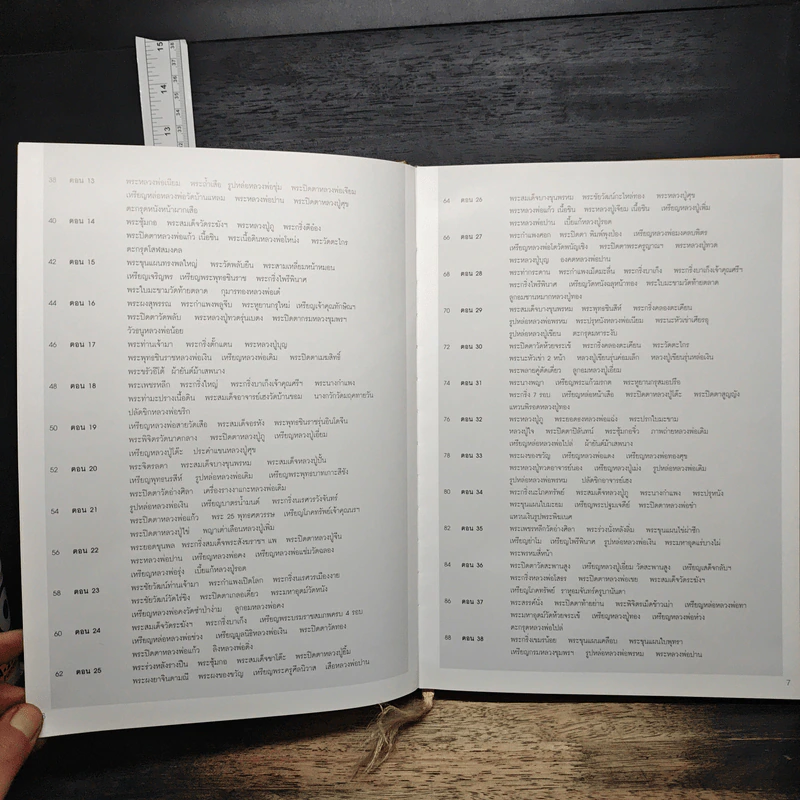 38 ตอน 13 พระหลวงพ่อเนียม พระถ้ำเสือ รูปหล่อหลวงพ่อชุ่ม พระปิดตาหลวงพ่อเจียม
เหรียญหล่อหลวงพ่อวัดบ้านแหลม พระหลวงพ่อปาน พระปิดตาหลวงปู่ศุข
ตะกรุดหนังหน้าผากเสือ
40 ตอน 14 พระซุ้มกอ พระสมเด็จวัดระฆังฯ พระหลวงปู่ภู พระกริ่งคีอ๋อง
พระปิดตาหลวงพ่อแก้ว เนื้อชิน พระเนื้อดินหลวงพ่อโหน่ง พระวัดตะไกร
ตะกรุดโสฬสมงคล
42 ตอน 15 พระขุนแผนทรงพลใหญ่ พระวัดพลับยืน พระสามเหลี่ยมหน้าหมอน
เหรียญเจริญพร เหรียญพระพุทธชินราช พระกริ่งไพรีพินาศ
พระใบมะขามวัดท้ายตลาด กุมารทองหลวงพ่อเต๋
44 ตอน 16 พระผงสุพรรณ พระกำแพงพลูจีบ พระหูยานกรุใหม่ เหรียญเจ้าคุณทักษิณฯ
พระปิดตาวัดพลับ พระหลวงปู่ทวดรุ่นเบตง พระปิดตากรมหลวงชุมพรฯ
วัวธนูหลวงพ่อน้อย
46 ตอน 17 พระท่านเจ้ามา พระกริ่งตั๊กแตน พระหลวงปู่บุญ
พระพุทธชินราชหลวงพ่อเงิน เหรียญหลวงพ่อเดิม พระปิดตาเมฆสิทธิ์
พระขรัวอีโต้ ผ้ายันต์ม้าเสพนาง
48 ตอน 18 พระเพชรหลีก พระกริ่งใหญ่ พระกริ่งบาเก็งเจ้าคุณศรีฯ พระนางกำแพง
พระท่ามะปรางเนื้อดิน พระสมเด็จอาจารย์เฮงวัดบ้านขอม นางกวักวัดมฤคทายวัน
ปลัดขิกหลวงพ่อขริก
50 ตอน 19 เหรียญหลวงพ่อสายวัดเสือ พระสมเด็จอรหัง พระพุทธชินราชรุ่นอินโดจีน
พระพิจิตรวัดนาคกลาง พระปิดตาหลวงปู่ภู เหรียญหลวงปู่เอี่ยม
เหรียญหลวงปู่โต๊ะ ประคำแขนหลวงปู่ศุข
52 ตอน 20 พระจิตรลดา พระสมเด็จบางขุนพรหม พระสมเด็จหลวงปู่ปั้น
เหรียญพุทธนรสีห์ รูปหล่อหลวงพ่อเดิม เหรียญพระพุทธบาทเกาะสีชัง
พระปิดตาวัดอ่างศิลา เครื่องรางงาแกะหลวงพ่อเดิม
54 ตอน 21 รูปหล่อหลวงพ่อเงิน เหรียญบาตรน้ำมนต์ พระกริ่งนเรศวรวังจันทร์
พระปิดตาหลวงพ่อแก้ว พระ 25 พุทธศตวรรษ เหรียญโภคทรัพย์เจ้าคุณนรฯ
พระปิดตาหลวงปู่ไข่ พญาเต่าเลือนหลวงปู่เพิ่ม
56 ตอน 22 พระยอดขุนพล พระกริ่งสมเด็จพระสังฆราชฯ แพ พระปิดตาหลวงปู่จีน
พระหลวงพ่อปาน เหรียญหลวงพ่อคง เหรียญหลวงพ่อแช่มวัดฉลอง
เหรียญหลวงพ่อรุ่ง เบี้ยแก้หลวงปู่รอด
58 ตอน 23 พระชัยวัฒน์ท่านเจ้ามา พระกำแพงเปิดโลก พระกริ่งนเรศวรเมืองงาย
พระชัยวัฒน์วัดไร่ขิง พระปิดตาเกลอเดียว พระมหาอุตม์วัดหนัง
เหรียญหลวงพ่อคงวัดซำป่าง่าม ลูกอมหลวงพ่อคง
60 ตอน 24 พระสมเด็จวัดระฆังฯ พระกริ่งบาเก็ง เหรียญพระบรมราชสมภพครบ 4 รอบ
เหรียญหล่อหลวงพ่อช่วง เหรียญมูลนิธิหลวงพ่อเงิน พระปิดตาวัดทอง
พระปิดตาหลวงพ่อแก้ว ลิงหลวงพ่อดิ่ง
62 ตอน 25 พระร่วงหลังรางปืน พระซุ้มกอ พระสมเด็จขาโต๊ะ พระปิดตาหลวงปู่ยิ้ม
พระผงยาจินดามณี พระผงของขวัญ เหรียญพระครูศีลนิวาส เสือหลวงพ่อปาน
64 ตอน 26 พระสมเด็จบางขุนพรหม พระชัยวัฒน์กะไหล่ทอง พระหลวงปู่ศุข
พระหลวงพ่อแก้ว เนื้อชิน พระหลวงปู่เจียม เนื้อชิน เหรียญหลวงปู่เพิ่ม
พระหลวงพ่อปาน เบี้ยแก้หลวงปู่รอด
66 ตอน 27 พระกำแพงศอก พระปิดตา พิมพ์พุงป่อง เหรียญหลวงพ่อมงคลบพิตร
เหรียญหล่อโคว้ตพนัญเชิง พระปิดตาพระครูญาณฯ พระหลวงปู่ทวด
พระหลวงปู่บุญ องคตหลวงพ่อปาน
68 ตอน 28 พระท่ากระดาน พระกำแพงเม็ดมะลื่น พระกริ่งบาเก็ง พระกริ่งบาเก็งเจ้าคุณศรีฯ
พระกริ่งไพรีพินาศ เหรียญวัดหนังฉลุหน้าทอง พระใบมะขามวัดท้ายตลาด
ลูกอมชานหมากหลวงปู่ทอง
70 ตอน 29 พระสมเด็จบางขุนพรหม พระพุทธชินสีห์ พระกริ่งคลองตะเคียน
รูปหล่อหลวงพ่อพรหม พระปรุหนังหลวงพ่อเนียม พระนะหัวเข่าเศียรอุ
รูปหล่อหลวงปู่เขียน ตะกรุดมหาระงับ
72 ตอน 30 พระปิดตาวัดห้วยจระเข้ พระกริ่งคลองตะเคียน พระวัดตะไกร
พระนะหัวเข่า 2 หน้า หลวงปู่เขียนรุ่นค่อมเล็ก หลวงปู่เขียนรุ่นหล่อเงิน
พระพลายคู่ตัดเดี่ยว ลูกอมหลวงปู่เอี่ยม
74 ตอน 31 พระนางพญา เหรียญพระแก้วมรกต พระหูยานกรุสมอปรือ
พระกริ่ง 7 รอบ เหรียญหล่อหน้าเสือ พระปิดตาหลวงปู่โต๊ะ พระปิดตาสูญผัง
แหวนพิรอดหลวงปู่ทอง
76 ตอน 32 พระหลวงปู่ภู พระยอดธงหลวงพ่อแฉ่ง พระปรกใบมะขาม
หลวงปู่ใจ พระปิดตาปิลันทน์ พระซุ้มกอจิ๋ว ภาพถ่ายหลวงพ่อเดิม
เหรียญหล่อหลวงพ่อไปล่ ผ้ายันต์ม้าเสพนาง
78 ตอน 33 พระผงของขวัญ เหรียญหลวงพ่อแดง เหรียญหลวงพ่อทองศุข
พระหลวงปู่ทวดอาจารย์นอง เหรียญหลวงปู่เม่ง รูปหล่อหลวงพ่อเดิม
รูปหล่อหลวงพ่อพรหม ปลัดขิกอาจารย์เฮง
80 ตอน 34 พระกริ่งเณโภคทรัพย์ พระสมเด็จหลวงปู่ภู พระนางกำแพง พระปรุหนัง
พระขุนแผนใบมะยม เหรียญพระปฐมเจดีย์ พระปิดตาหลวงพ่อขำ
แหวนเงินรูปพระพิฆเนศ
82 ตอน 35 พระเพชรหลีกวัดอ่างศิลา พระร่วงนั่งหลังลิ่ม พระขุนแผนไข่ผ่าซีก
เหรียญย่าโม เหรียญไพรีพินาศ รูปหล่อหลวงพ่อเงิน พระมหาอุดแร่บางไผ่
พระพรหมสี่หน้า
84 ตอน 36 พระปิดตาวัดสะพานสูง เหรียญหลวงปู่เอี่ยม วัดสะพานสูง เหรียญเสด็จกลับฯ
พระกริ่งหลวงพ่อโสธร พระปิดตาหลวงพ่อเขย พระสมเด็จวัดระฆังฯ
เหรียญโภคทรัพย์ ราหูอมจันทร์ครูบานันตา
86 ตอน 37 พระสรรค์นั่ง พระปิดตาท้ายย่าน พระพิจิตรเม็ดข้าวเม่า เหรียญหล่อหลวงพ่อทา
พระมหาอุตม์วัดห้วยจระเข้ เหรียญหลวงปู่ทอง เหรียญหลวงพ่อห่วง
ตะกรุดหลวงพ่อไปล่
88 ตอน 38 พระกริ่งเขมรน้อย พระขุนแผนเคลือบ พระขุนแผนใบพุทรา
เหรียญกรมหลวงชุมพรฯ รูปหล่อหลวงพ่อพรหม พระหลวงพ่อปาน
7
15
14
13